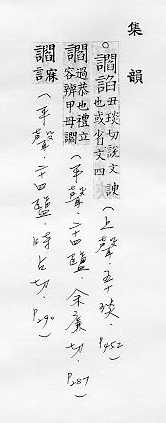 集韻
○讇諂丑琰切說文諛也或省文四(上聲・五十琰・P452)
讇過恭也禮立容辨卑毋讇(平聲・二十四鹽・余廉切・P287)
讇寐言(平聲・二十四鹽・時占切・P290)